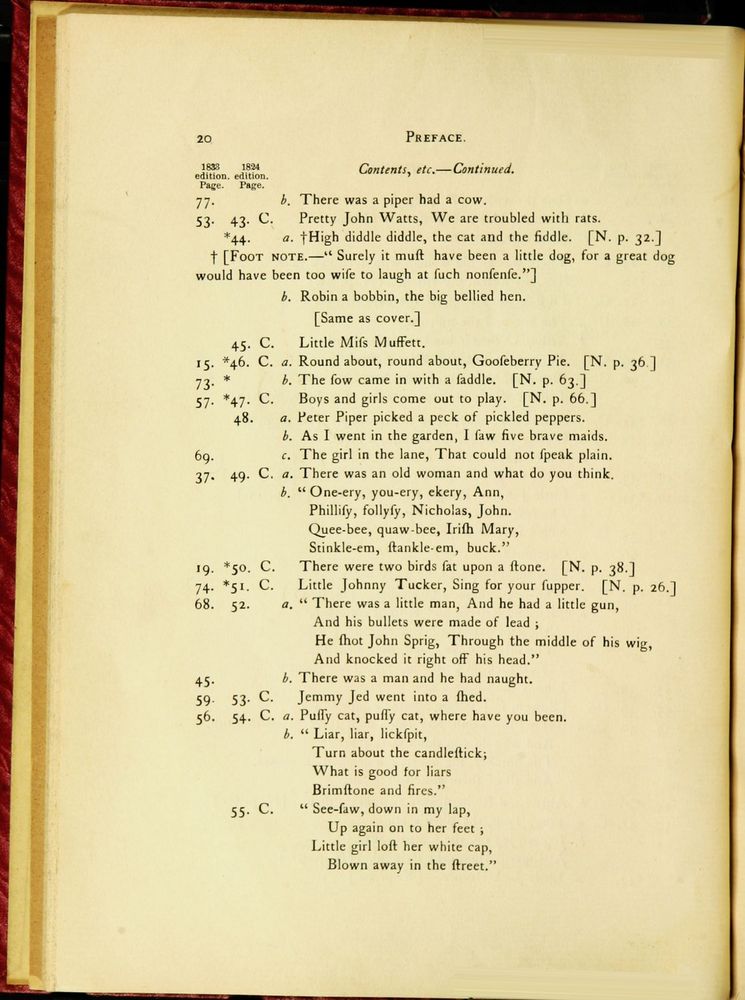 20 PREFACE.
1833 1824
edition. edition.
Page. Page.
Contents, etc.—Continued.
77. b. There was a piper had a cow.
53. 43. C. Pretty John Watts, We are troubled with rats.
*44. a. †High diddle diddle, the cat and the fiddle. [N. p. 32.]
† [FOOT NOTE.—“ Surely it muſt have been a little dog, for a great dog
would have been too wiſe to laugh at ſuch nonſenſe.”]
b. Robin a bobbin, the big bellied hen.
[Same as cover.]
45. C. Little Miſs Muffett.
15. *46. C. a. Round about, round about, Gooſeberry Pie. [N. p. 36.]
73. * b. The ſow came in with a ſaddle. [N. p. 63.]
57. *47. C. Boys and girls come out to play. [N. p. 66.]
48. a. Peter Piper picked a peck of pickled peppers.
b. As I went in the garden, I ſaw five brave maids.
69. c. The girl in the lane, That could not ſpeak plain.
37. 49. C. a. There was an old woman and what do you think.
b. “ One-ery, you-ery, ekery, Ann,
Philliſy, follyſy, Nicholas, John.
Quee-bee, quaw-bee, Iriſh Mary,
Stinkle-em, ſtankle-em, buck.”
19. *50. C. There were two birds ſat upon a ſtone. [N. p. 38.]
74. *51. C. Little Johnny Tucker, Sing for your ſupper. [N. p. 26.]
68. 52. a. “ There was a little man, And he had a little gun,
And his bullets were made of lead ;
He ſhot John Sprig, Through the middle of his wig,
And knocked it right off his head.”
45. b. There was a man and he had naught.
59. 53. C. Jemmy Jed went into a ſhed.
56. 54. C. a. Puſſy cat, puſſy cat, where have you been.
b. “ Liar, liar, lickſpit,
Turn about the candleſtick;
What is good for liars
Brimſtone and fires.”
55. C. “ See-ſaw, down in my lap,
Up again on to her feet ;
Little girl loſt her white cap,
Blown away in the ſtreet.”